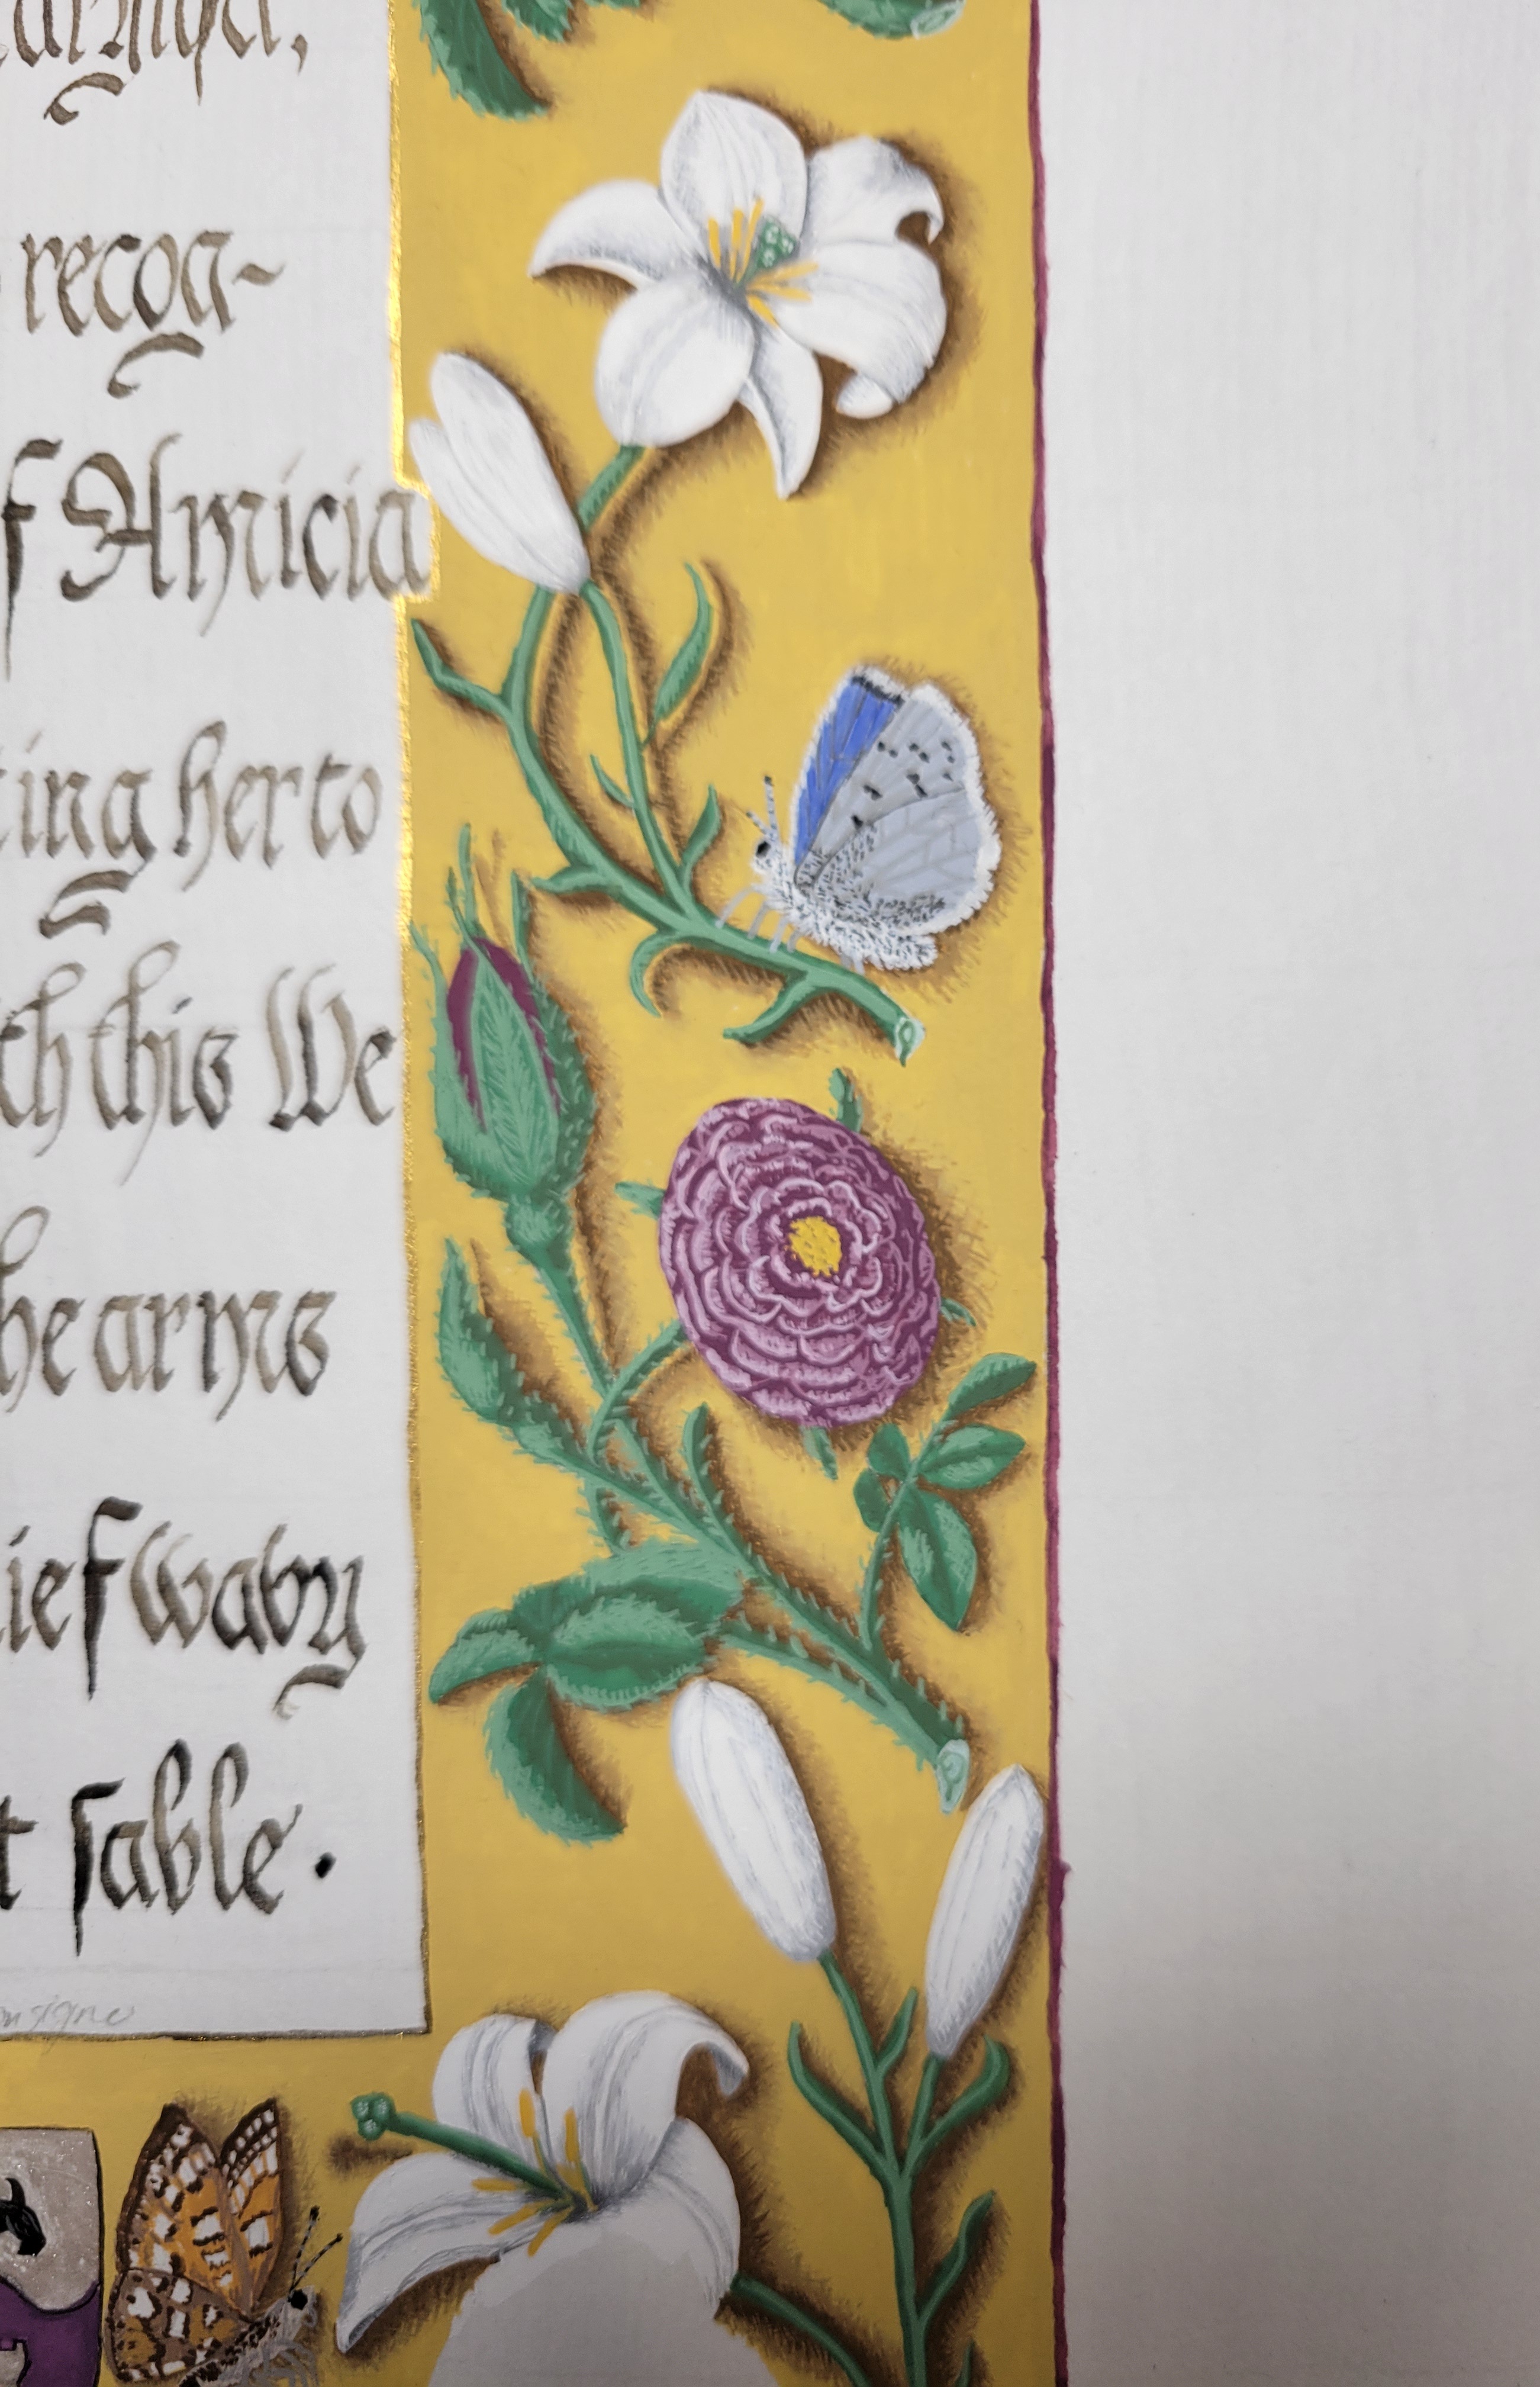 recog-
f Amicia
ting her to
th this We
he arms
ief wavy
t sable.